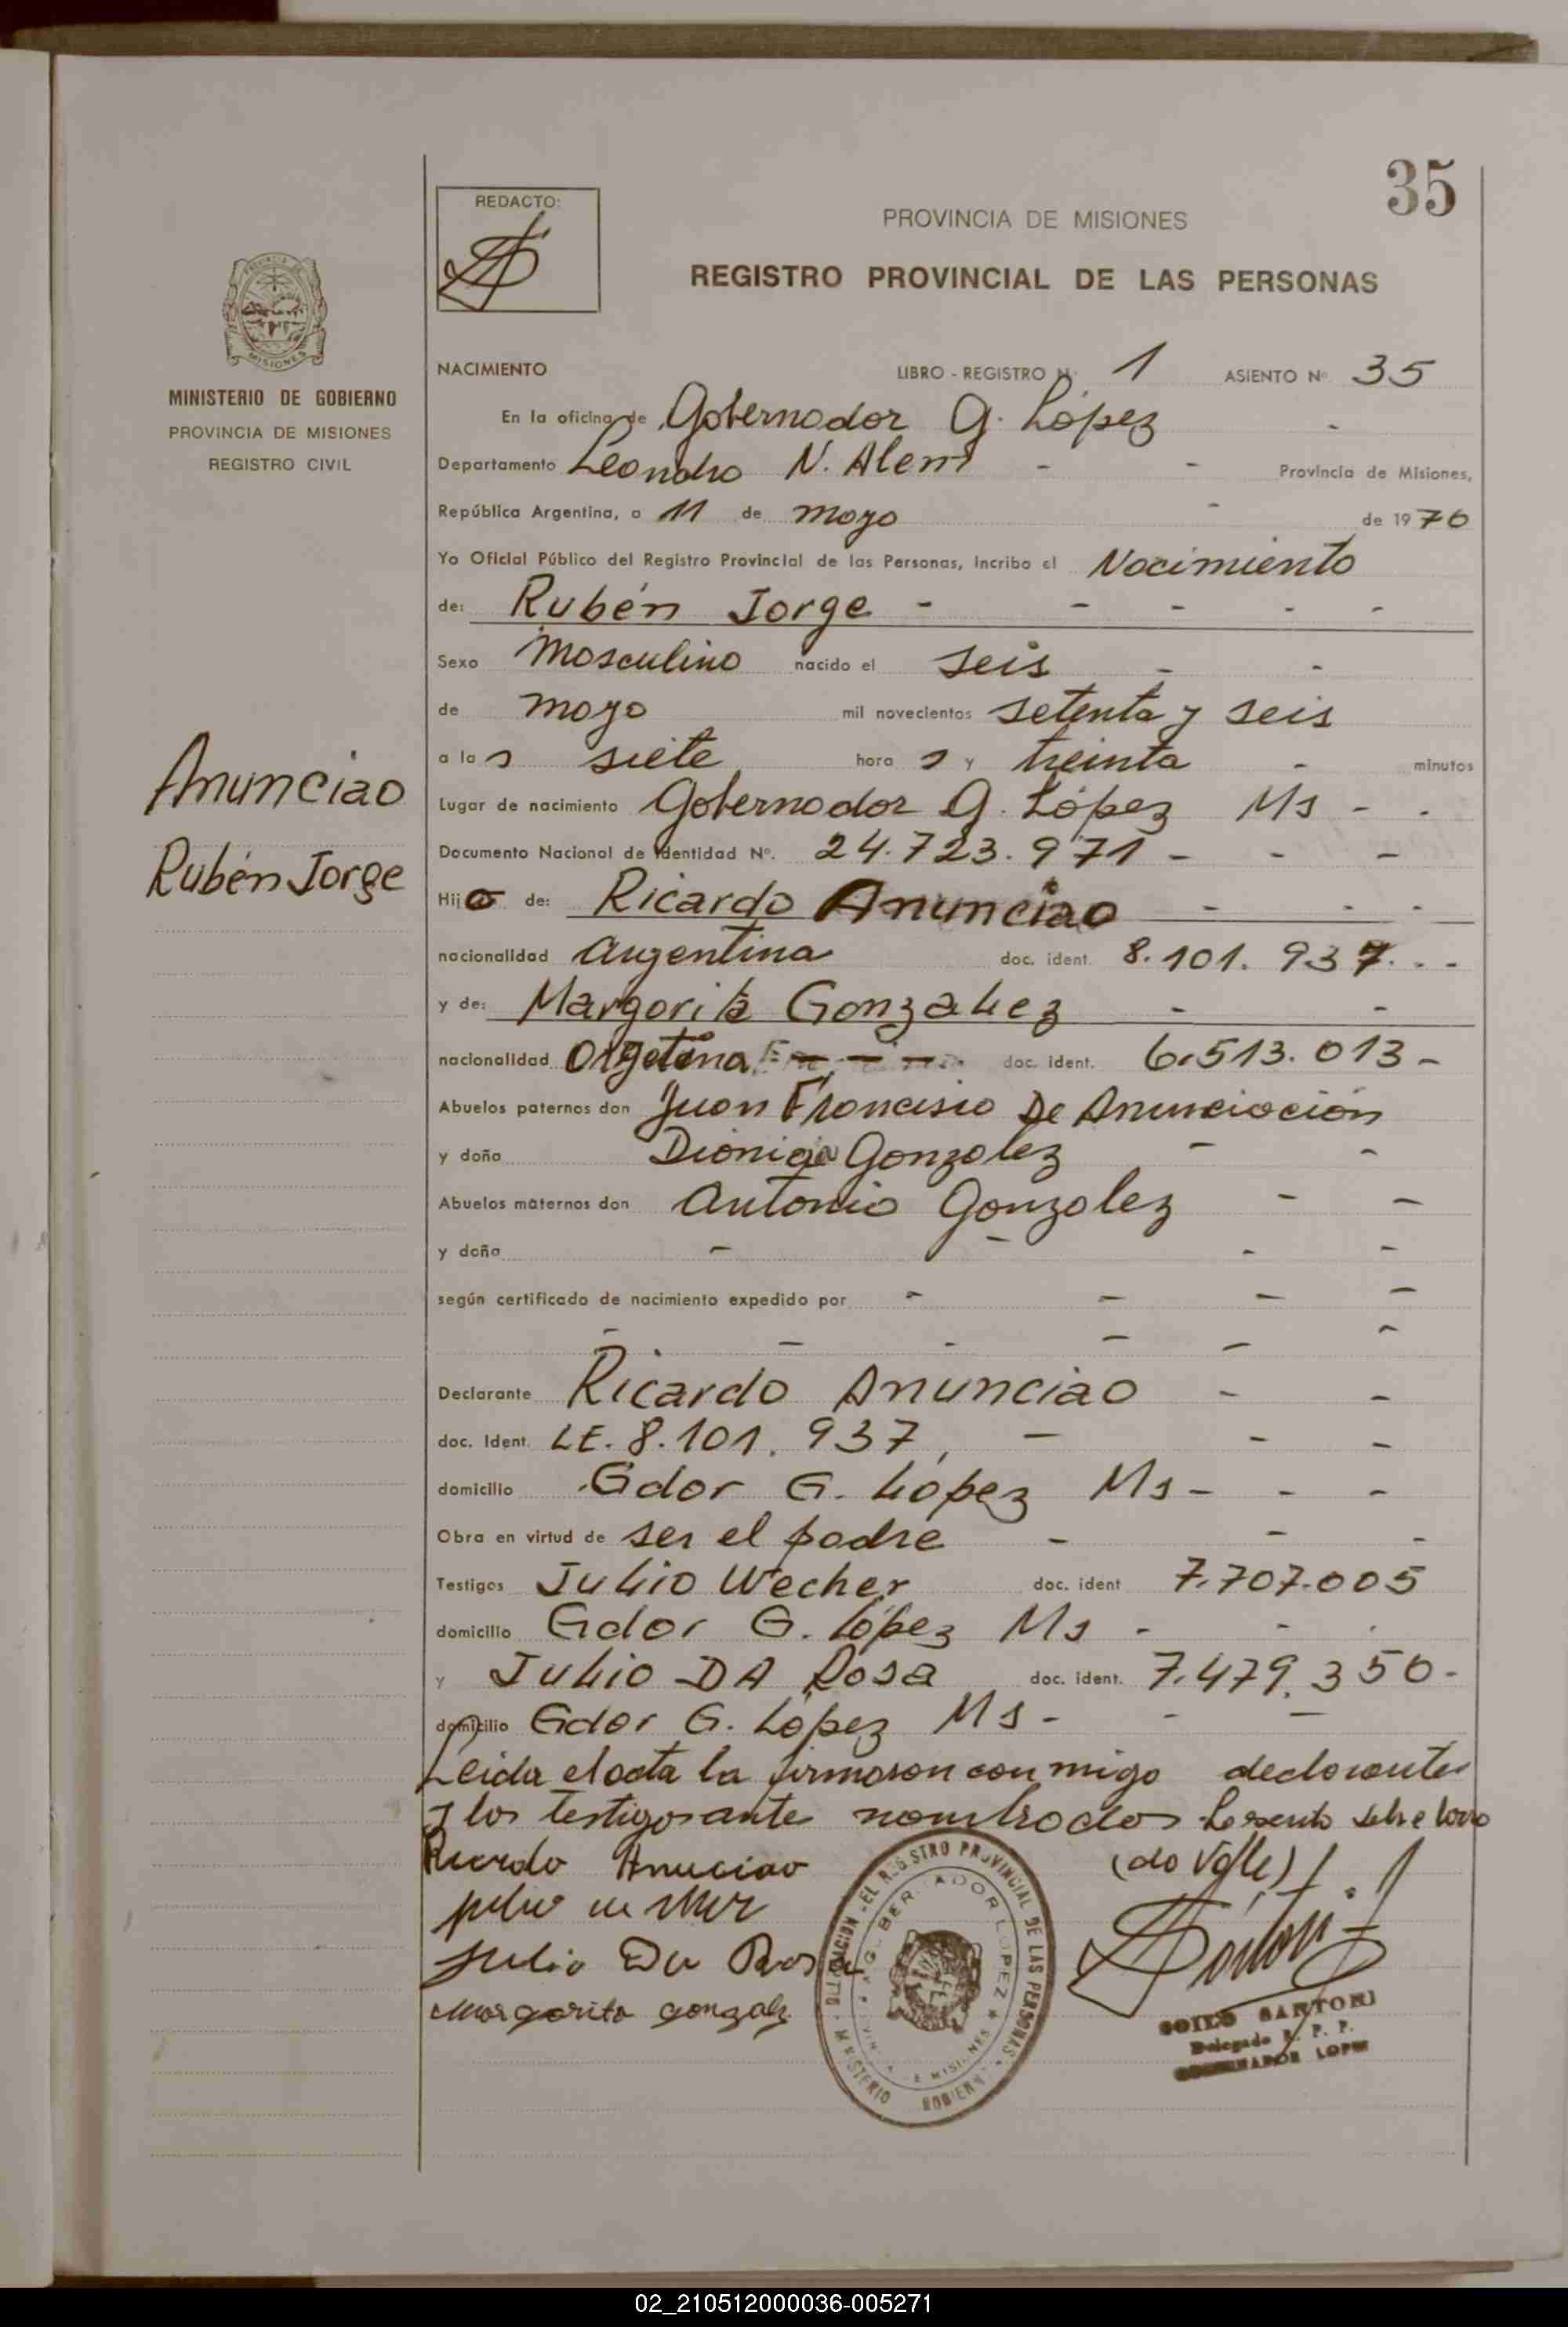 35
REDACTO:
PROVINCIA DE MISIONES
REGISTRO PROVINCIAL DE LAS PERSONAS
MISIONES
MINISTERIO DE GOBIERNO
PROVINCIA DE MISIONES
REGISTRO CIVIL
Anunciao
Rubén Jorge
NACIMIENTO LIBRO - REGISTRO N. 1 ASIENTO Nº 35
En la oficina de Gobernador G. López -
Departamento Leandro N. Alem - - Provincia de Misiones,
República Argentina, a 11 de mayo - de 1976
Yo Oficial Público del Registro Provincial de las Personas, incribo el Nacimiento
de: Rubén Jorge - - - - -
Sexo Masculino nacido el seis - -
de mayo mil novecientos setenta y seis
a las siete horas y treinta - minutos
Lugar de nacimiento Gobernador G. López Ms - -
Documento Nacional de Identidad Nº. 24.723.971 - - -
Hijo de: Ricardo Anunciao - - -
nacionalidad argentina doc. ident. 8.101.937. - -
y de: Margarita Gonzalez - -
nacionalidad argetina - - - doc. ident. 6.513.013 -
Abuelos paternos don Juan Francisco De Anunciación
y doña Gonzalez - -
Abuelos maternos don Antonio Gonzalez - -
y doña - - - -
según certificado de nacimiento expedido por - - - -
- - - - - -
Declarante Ricardo Anunciao - -
doc. Ident. LE. 8.101.937, - - -
domicilio Gdor G. López Ms - - -
Obra en virtud de ser el padre - - -
Testigos Julio Wecher doc. ident 7.707.005
domicilio Gdor G. López Ms - - .
y Julio DA Rosa doc. ident. 7.479.350 -
domicilio Gdor G. López Ms - - -
Leida el acta la firmaron conmigo declarante
y los testigos ante nombrados Lo escrito sobre borrado
Ricardo Anuciao (do Valle)
Julio Da Rosa
Margarita gonzalz
DELEGACION DEL REGISTRO PROVINCIAL DE LAS PERSONAS
GOBERNADOR LOPEZ
MISIONES
MINISTERIO GOBIERNO
SARTORI
Delegado R. P. P.
GOBERNADOR LOPEZ
02_210512000036-005271